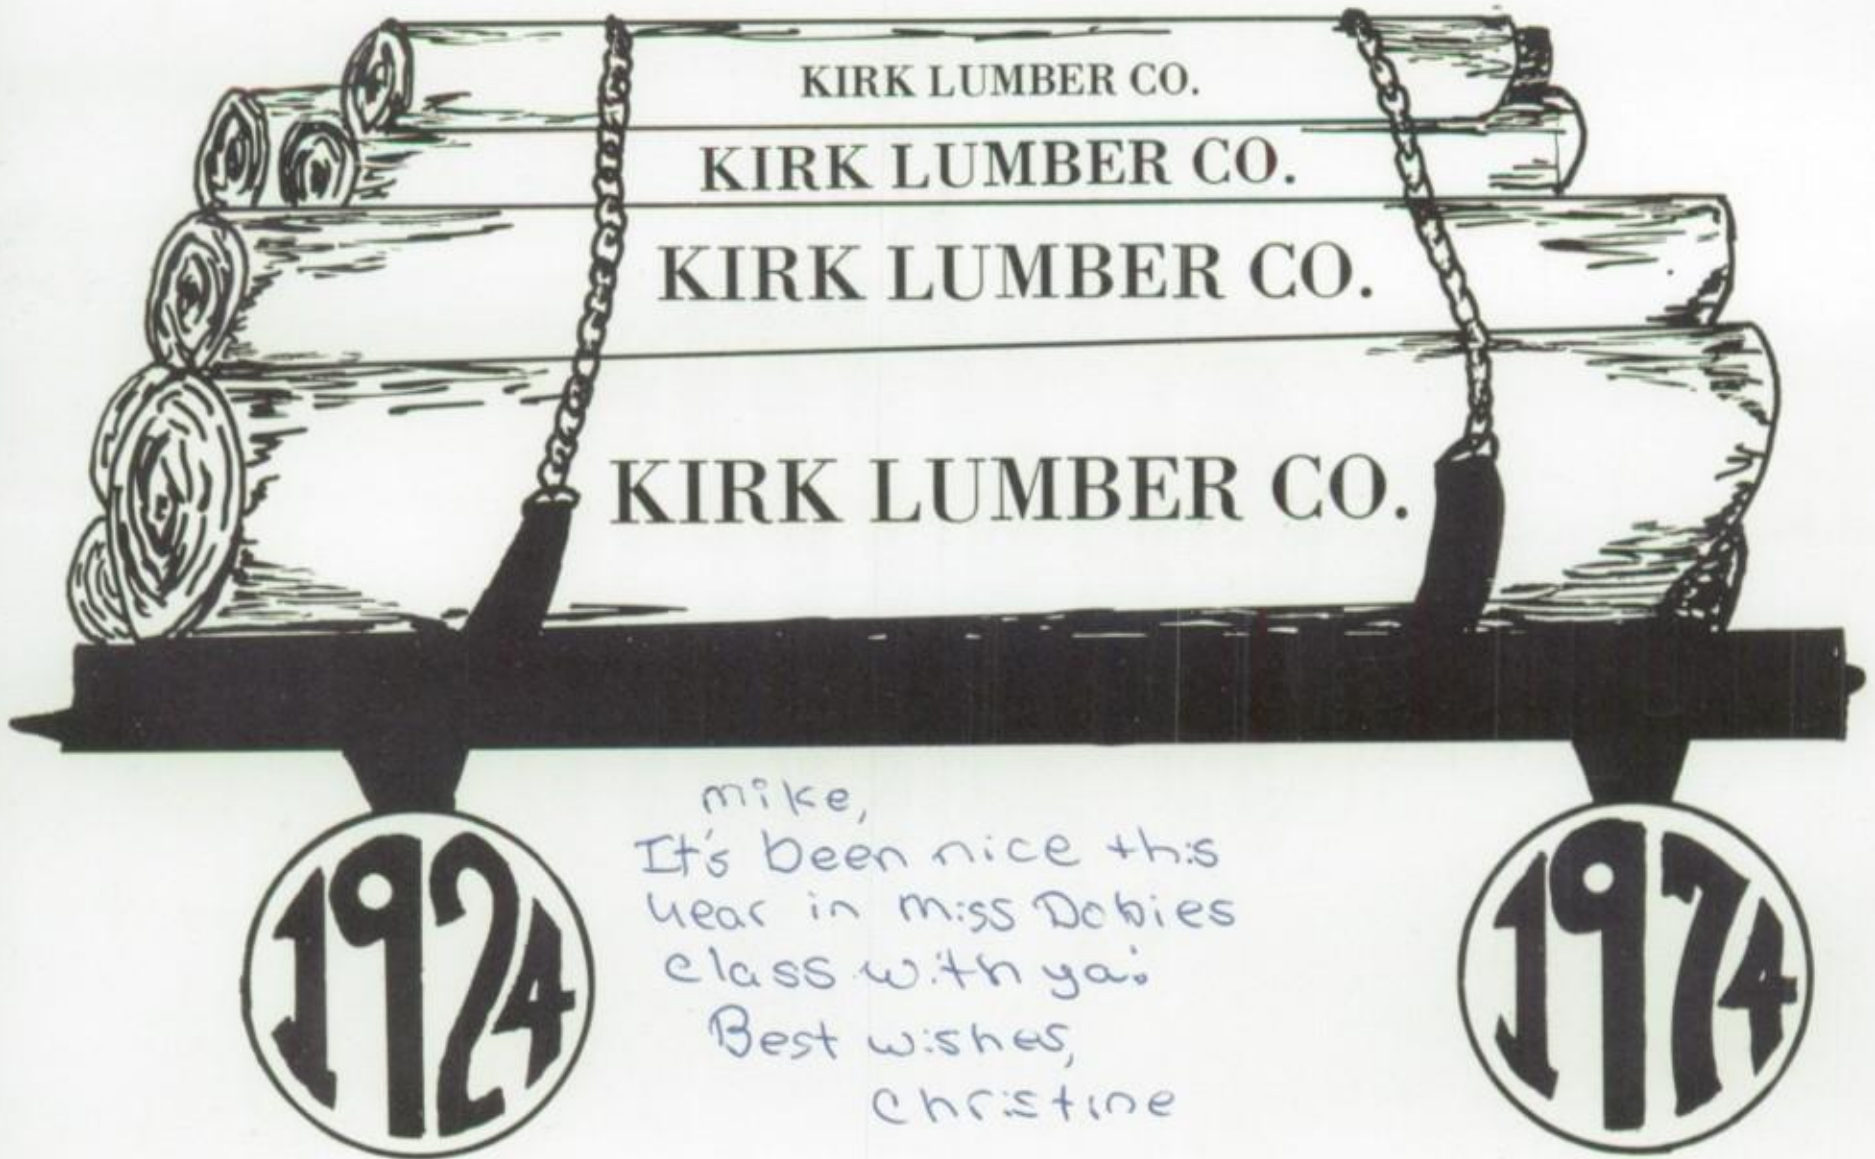 KIRK LUMBER CO.
KIRK LUMBER CO.
KIRK LUMBER CO.
KIRK LUMBER CO.
1924
mike,
It's been nice this
year in Miss Dobies
class with ya.
Best wishes,
Christine
1974